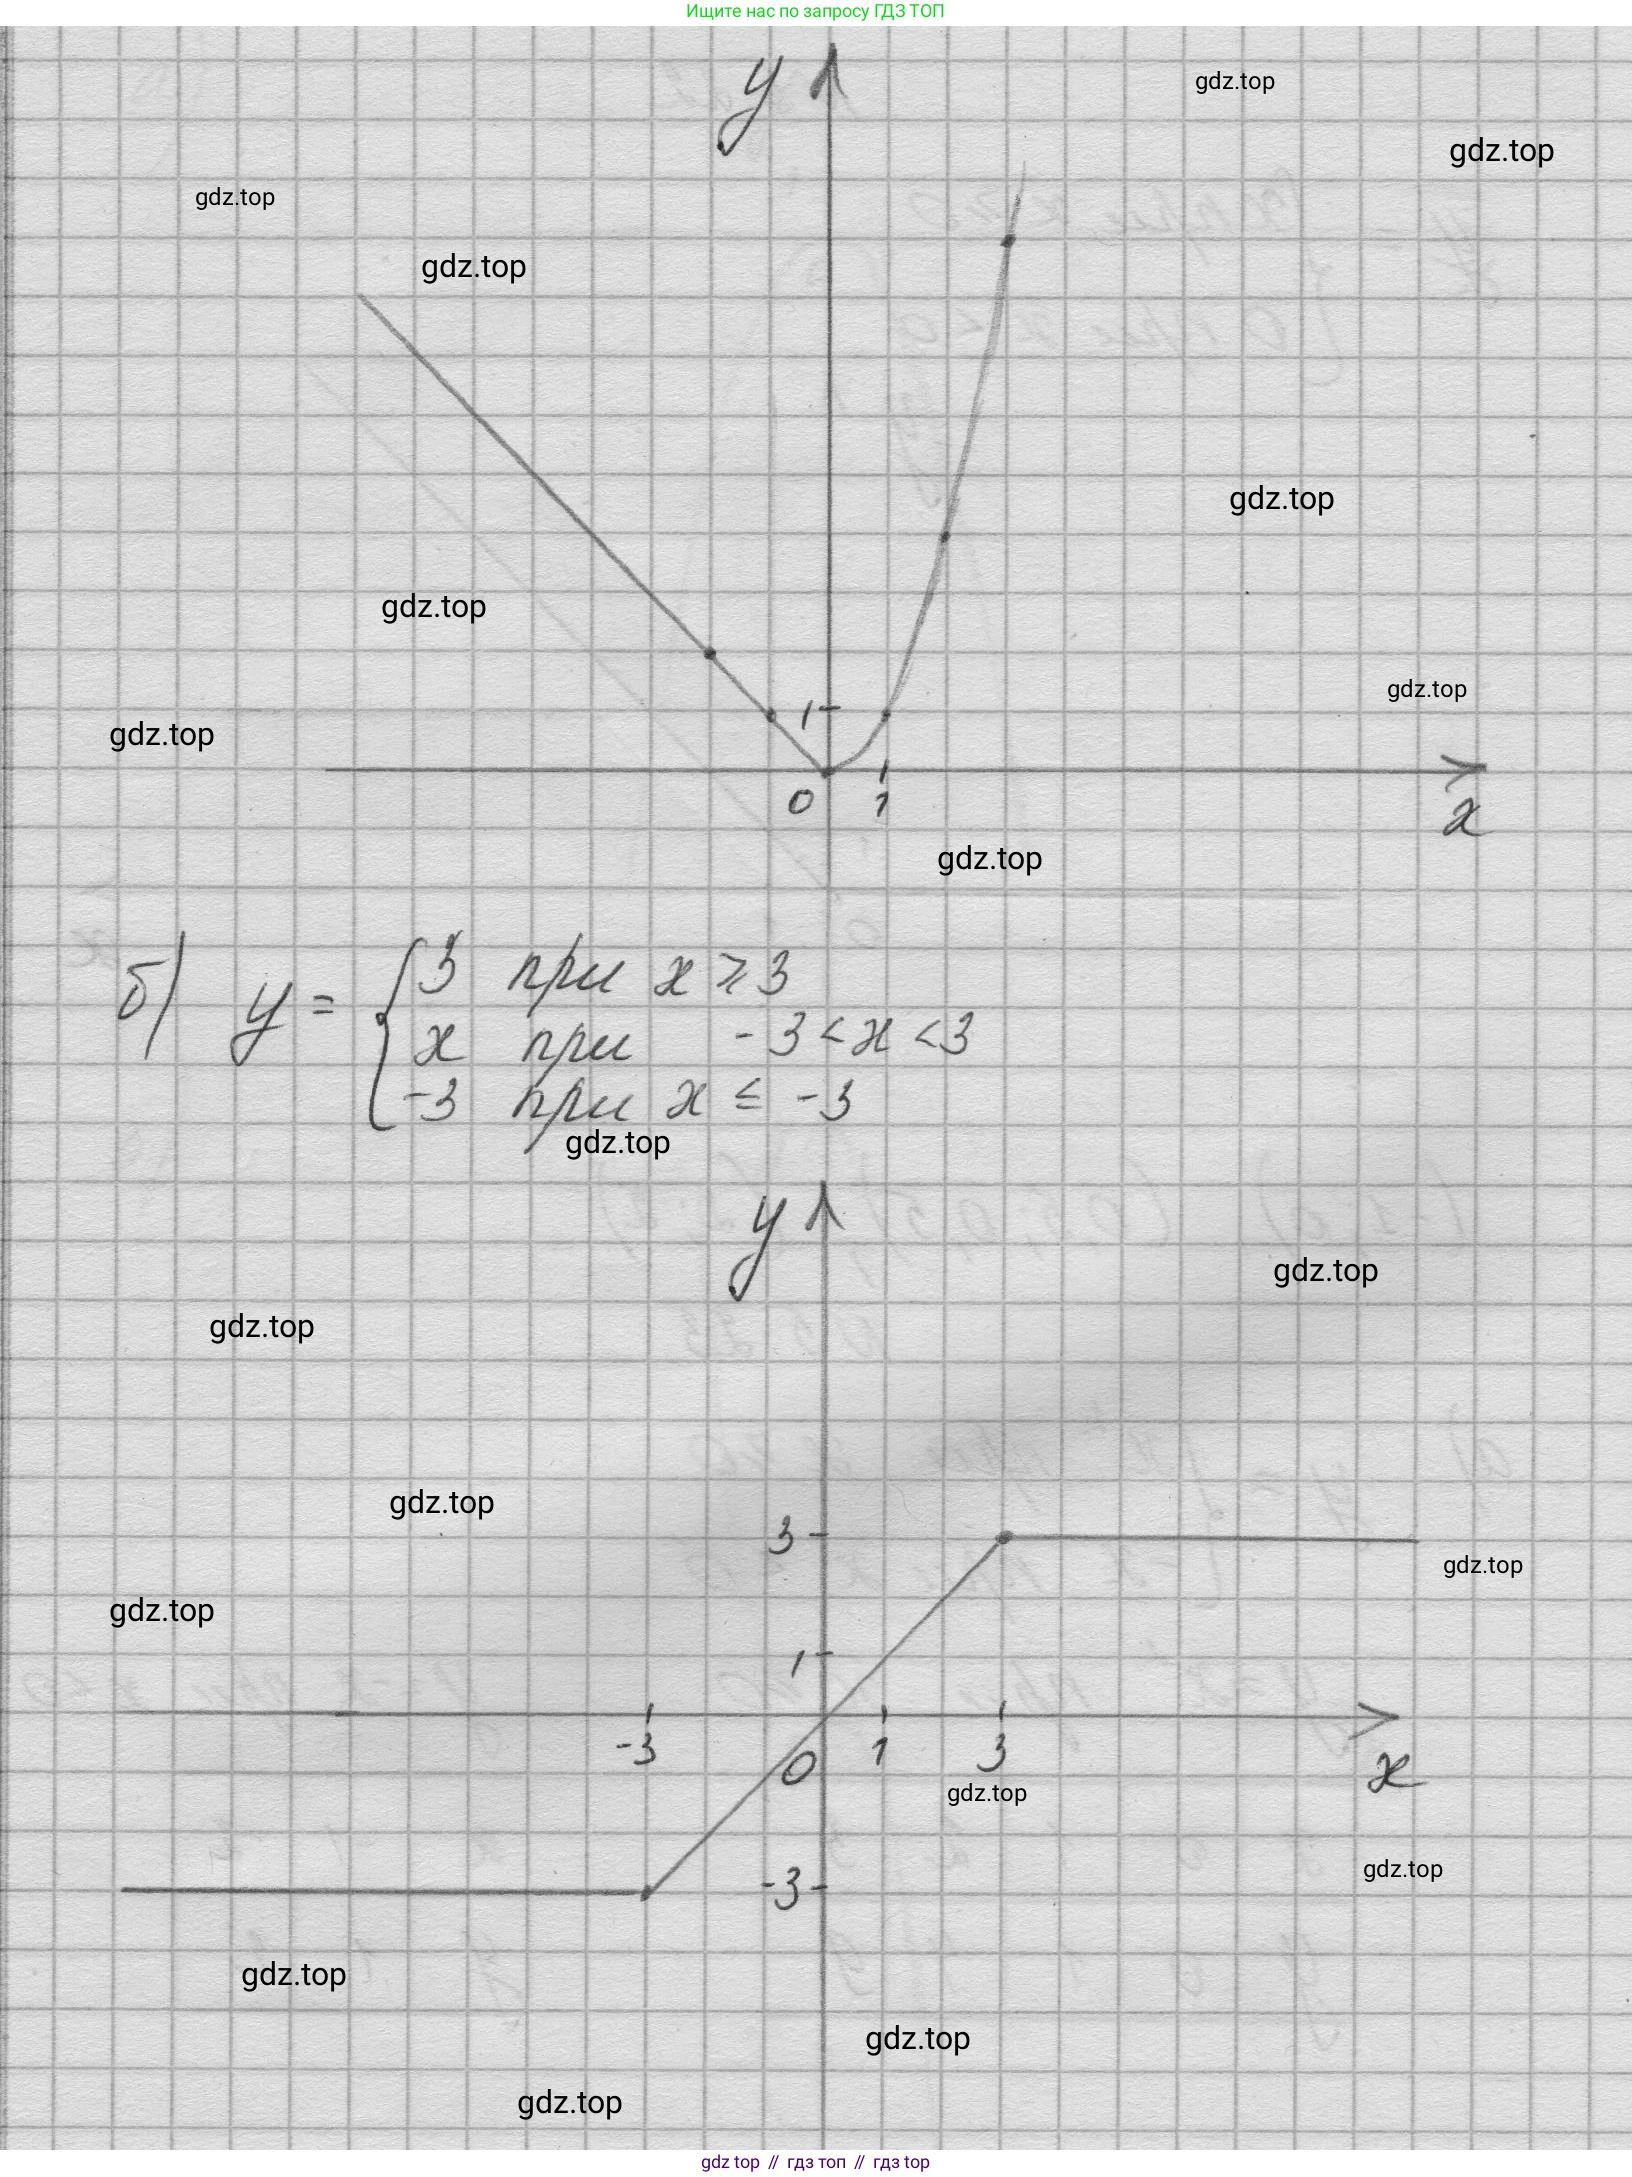 Ищите нас по запросу ГДЗ ТОП
y
gdz.top
gdz.top
gdz.top
gdz.top
gdz.top
gdz.top
gdz.top
1
gdz.top
0 1
x
gdz.top
б) y = { 3 при x ≥ 3
x при -3 < x < 3
-3 при x ≤ -3
gdz.top
y
gdz.top
gdz.top
gdz.top
3
gdz.top
gdz.top
1
-3 0 1 3
x
gdz.top
gdz.top
-3
gdz.top
gdz.top
gdz.top
gdz top // гдз топ // гдз top